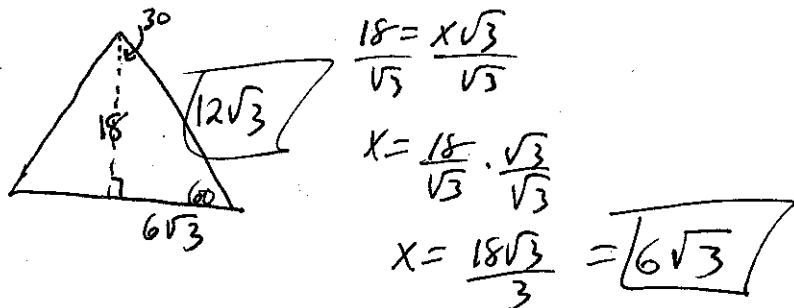 30
18
12√3
60
6√3
18/√3 = x√3/√3
x = 18/√3 · √3/√3
x = 18√3/3 = 6√3